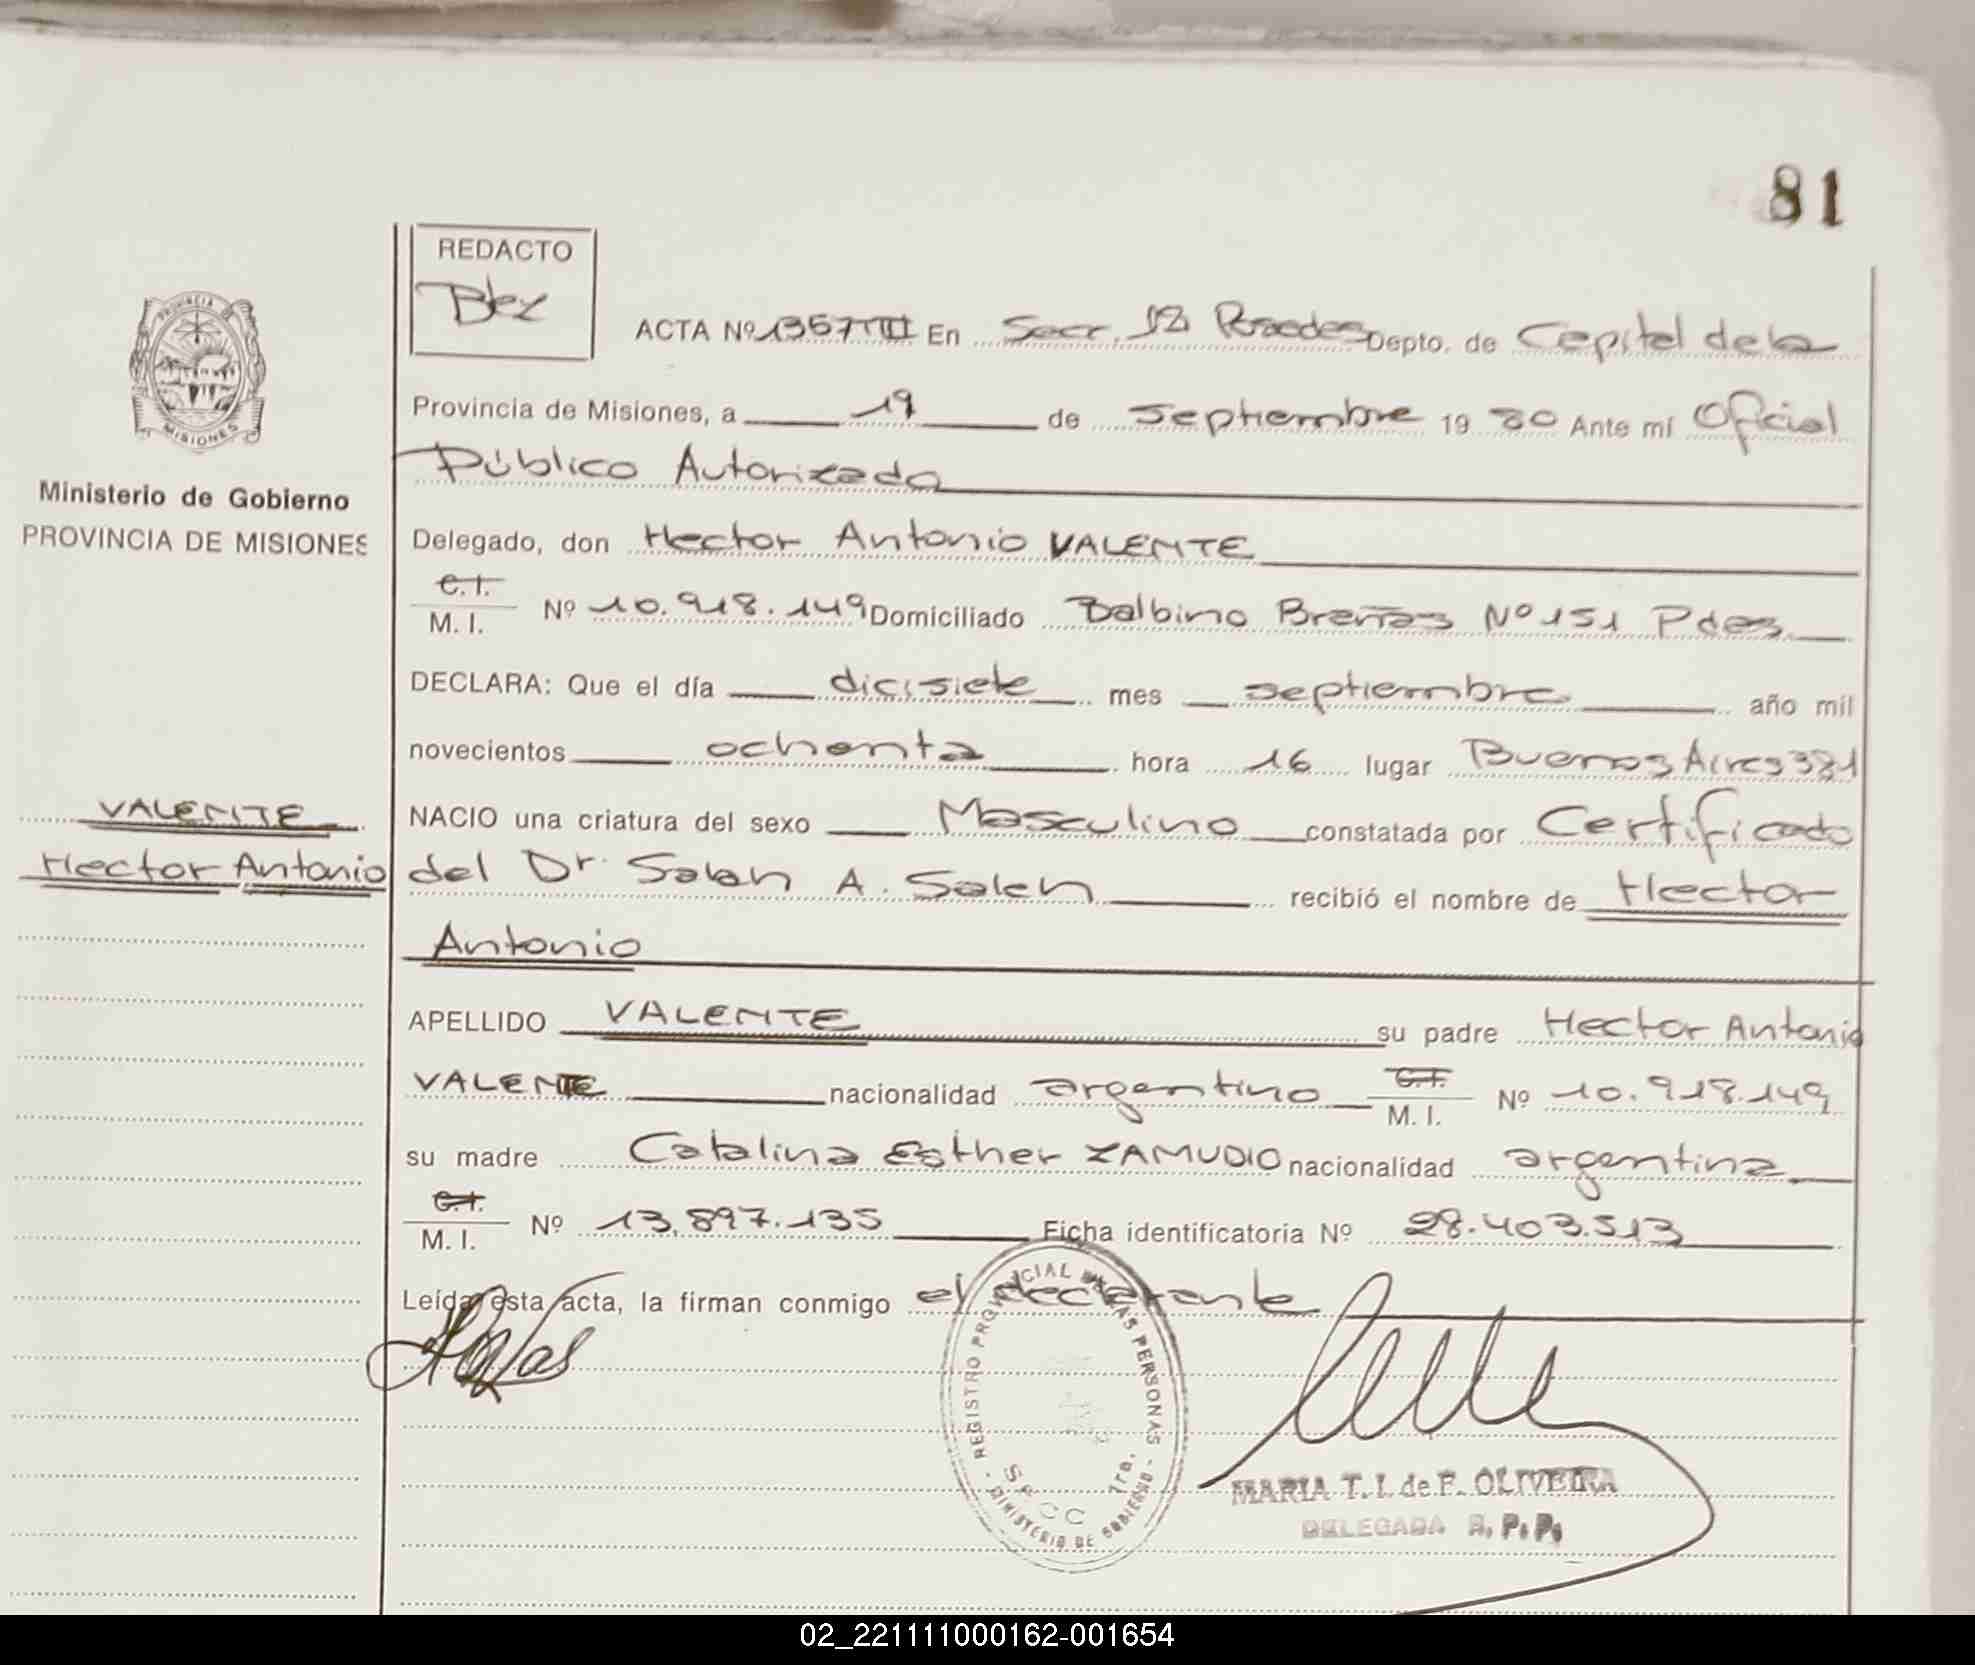 81
REDACTO
ACTA Nº 1357 TIII En Secr. 1ª Posadas Depto. de Capital de la
PROVINCIA
MISIONES
Provincia de Misiones, a 19 de Septiembre 19 80 Ante mí Oficial
Público Autorizada
Ministerio de Gobierno
PROVINCIA DE MISIONES
Delegado, don Hector Antonio VALENTE
C. I.
M. I. Nº 10.918.149 Domiciliado Balbino Brañas Nº 151 Pdas
DECLARA: Que el día dicisiete mes septiembre año mil
novecientos ochenta hora 16 lugar Buenos Aires 381
VALENTE
NACIO una criatura del sexo Masculino constatada por Certificado
Hector Antonio
del Dr. Salen A. Salen recibió el nombre de Hector
Antonio
APELLIDO VALENTE su padre Hector Antonio
VALENTE nacionalidad argentino C. I. M. I. Nº 10.918.149
su madre Catalina Esther ZAMUDIO nacionalidad argentina
C. I.
M. I. Nº 13.897.135 Ficha identificatoria Nº 28.403.513
Leída esta acta, la firman conmigo el declarante
REGISTRO PROVINCIAL DE LAS PERSONAS
MINISTERIO DE GOBIERNO
1ra.
MARIA T. I. de F. OLIVEIRA
DELEGADA R. P. P.
02_221111000162-001654